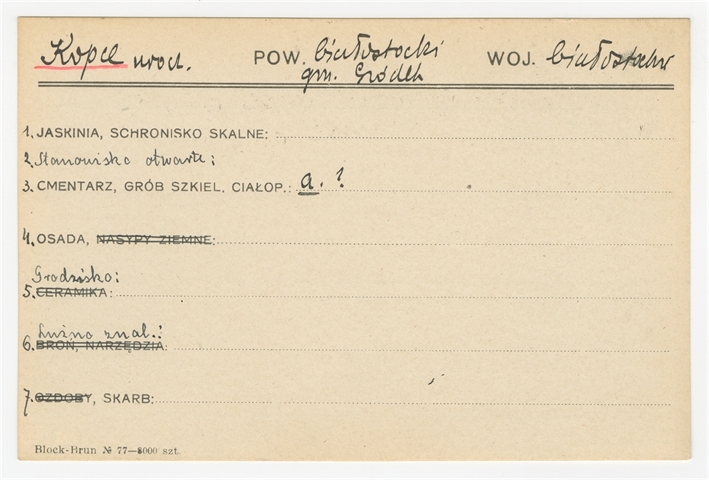 Kopce urocz. POW. białostocki WOJ. białostockie
gm. Gródek
1. JASKINIA, SCHRONISKO SKALNE:
2. Stanowisko otwarte:
3. CMENTARZ, GRÓB SZKIEL. CIAŁOP.: a. ?
4. OSADA, NASYPY ZIEMNE:
Grodzisko:
5. CERAMIKA:
Luźno znal.:
6. BROŃ, NARZĘDZIA:
7. OZDOBY, SKARB:
Block-Brun № 77—8000 szt.